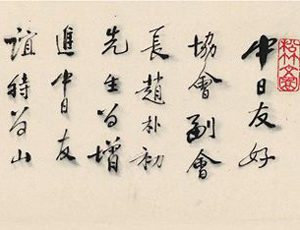 中日友好
協會副會
長趙朴初
先生為增
進中日友
誼特為山